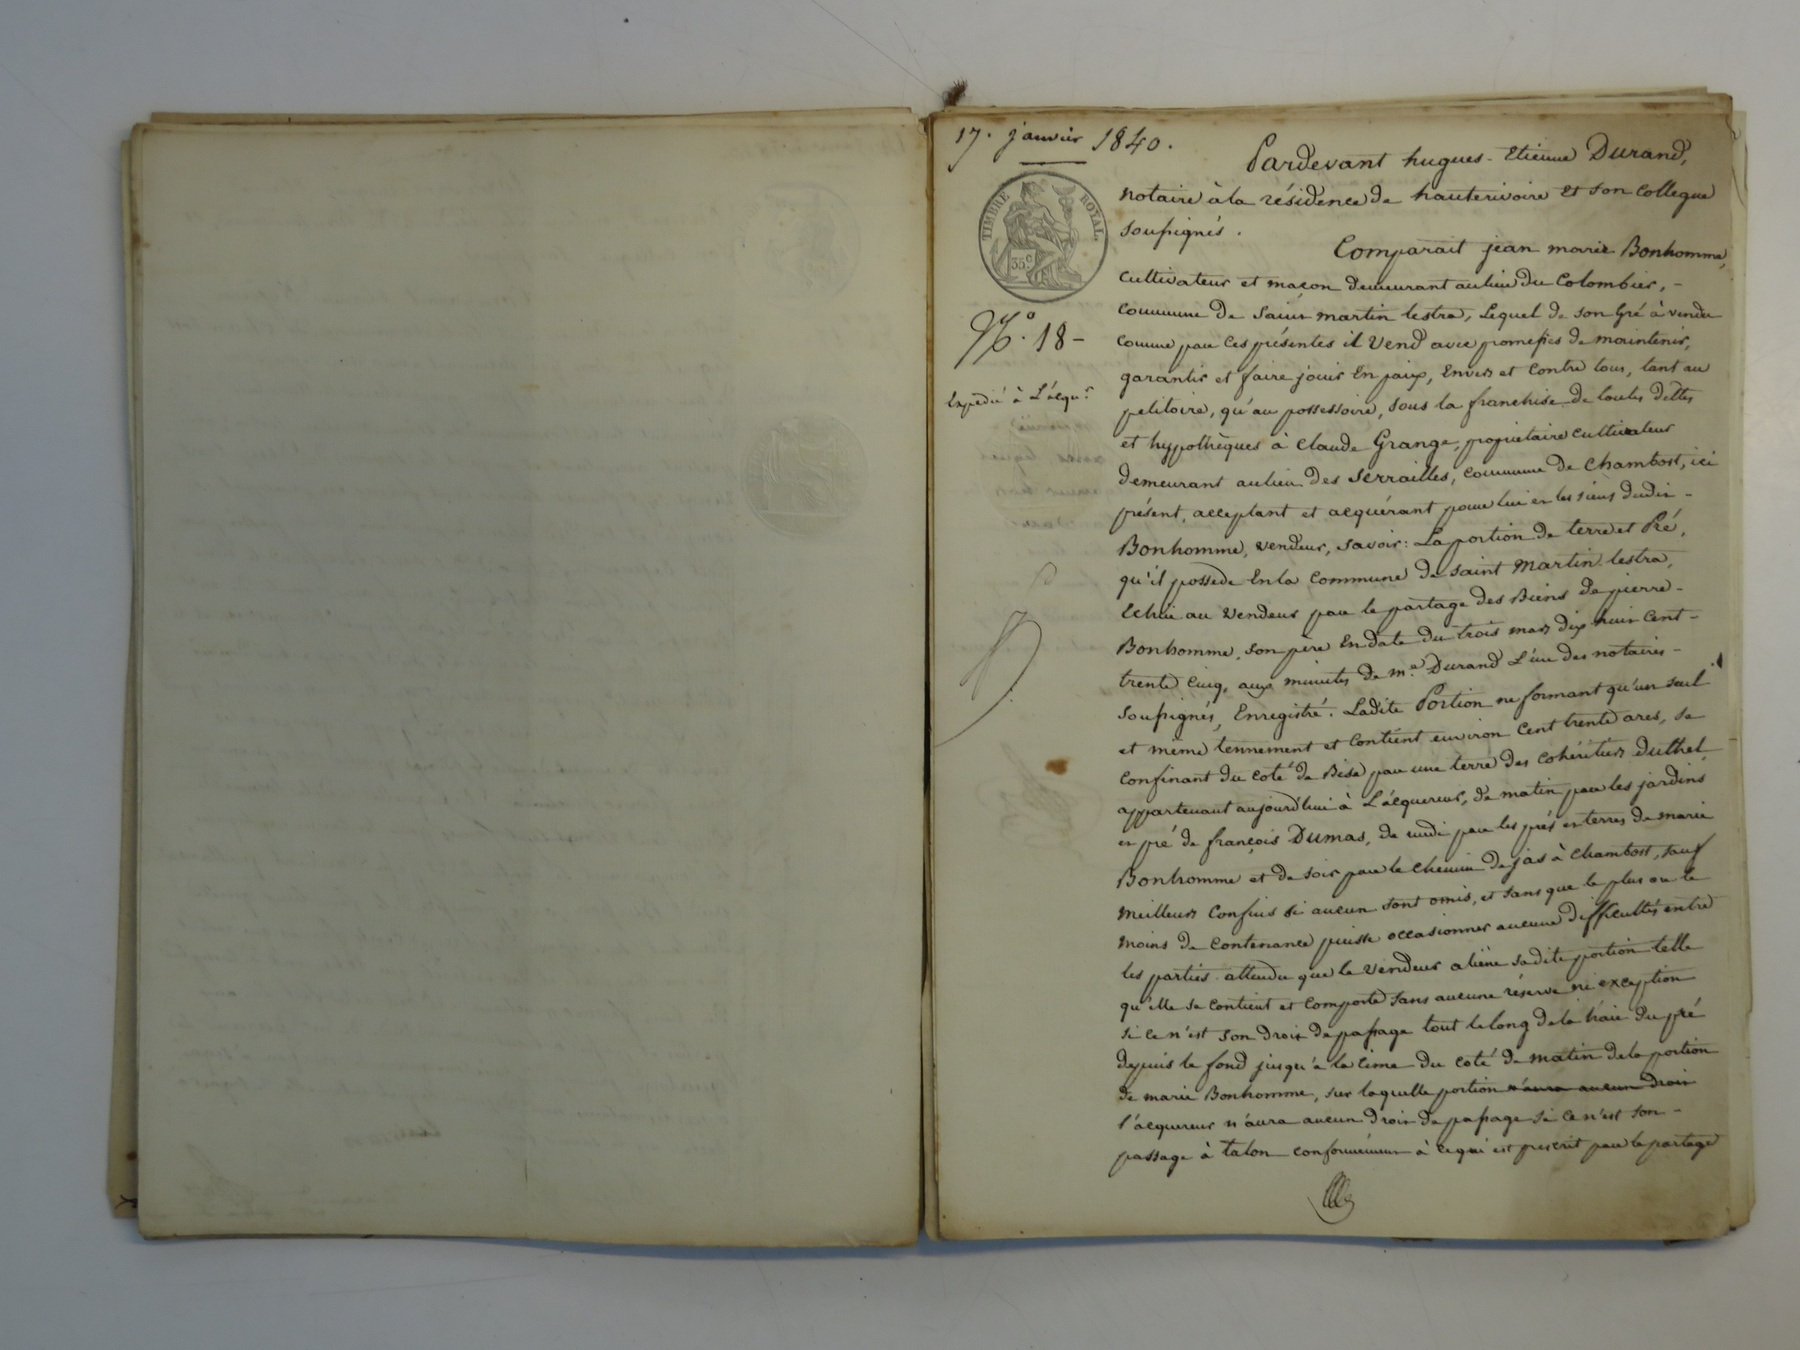 17. janvier 1840.
TIMBRE ROYAL.
35 c
N.° 18 -
Expedié à L'acqu.r
Pardevant hugues - Etienne Durand,
notaire à la résidence de hauterivoire et son collegue
soussignés.
Comparait jean marie Bonhomme,
cultivateur et maçon demeurant au lieu du Colombier, -
commune de Saint martin lestra, Lequel de son Gré à vendu
comme par ces présentes il Vend avec promesses de maintenir,
garantir et faire jouir En paix, Envers et Contre tous, tant au
petitoire, qu'au possessoire, sous la franchise de toutes dettes
et hypothèques à Claude Grange, propriétaire cultivateur
demeurant au lieu des Serrailles, commune de Chambost, ici
présent, acceptant et acquérant pour lui et les siens dudit -
Bonhomme, vendeur, savoir: La portion de terre et Pré,
qu'il possede En la Commune de Saint Martin lestra,
Echue au Vendeur par le partage des Biens de pierre -
Bonhomme, son père En date du trois mars dix huit Cent -
trente Cinq, aux minutes de m.e Durand L'un des notaires -
Soussignés, Enregistré. Ladite Portion ne formant qu'un seul
et même tennement et Contient environ Cent trente ares, se
Confinant du coté de Bise par une terre des Cohéritiers Duthel
appartenant aujourd'hui à L'acquereur, de matin par les jardins
et pré de françois Dumas, de midi par les prés et terres de marie
Bonhomme et de soir par le Chemin de jas à Chambost, sauf
meilleurs Confins si aucun sont omis, et sans que le plus ou le
moins de Contenance puisse occasionner aucune difficultés entre
les parties attendu que le Vendeur aliène sadite portion telle
qu'elle se contient et Comporte sans aucune réserve ni exception
si ce n'est son droit de passage tout le long de la haie du pré
depuis le fond jusqu'à la Cime du coté de matin de la portion
de marie Bonhomme, sur laquelle portion n'aura aucun droit
l'acquereur n'aura aucun droit de passage si ce n'est son -
passage à talon conformément à ce qui est prescrit par le partage